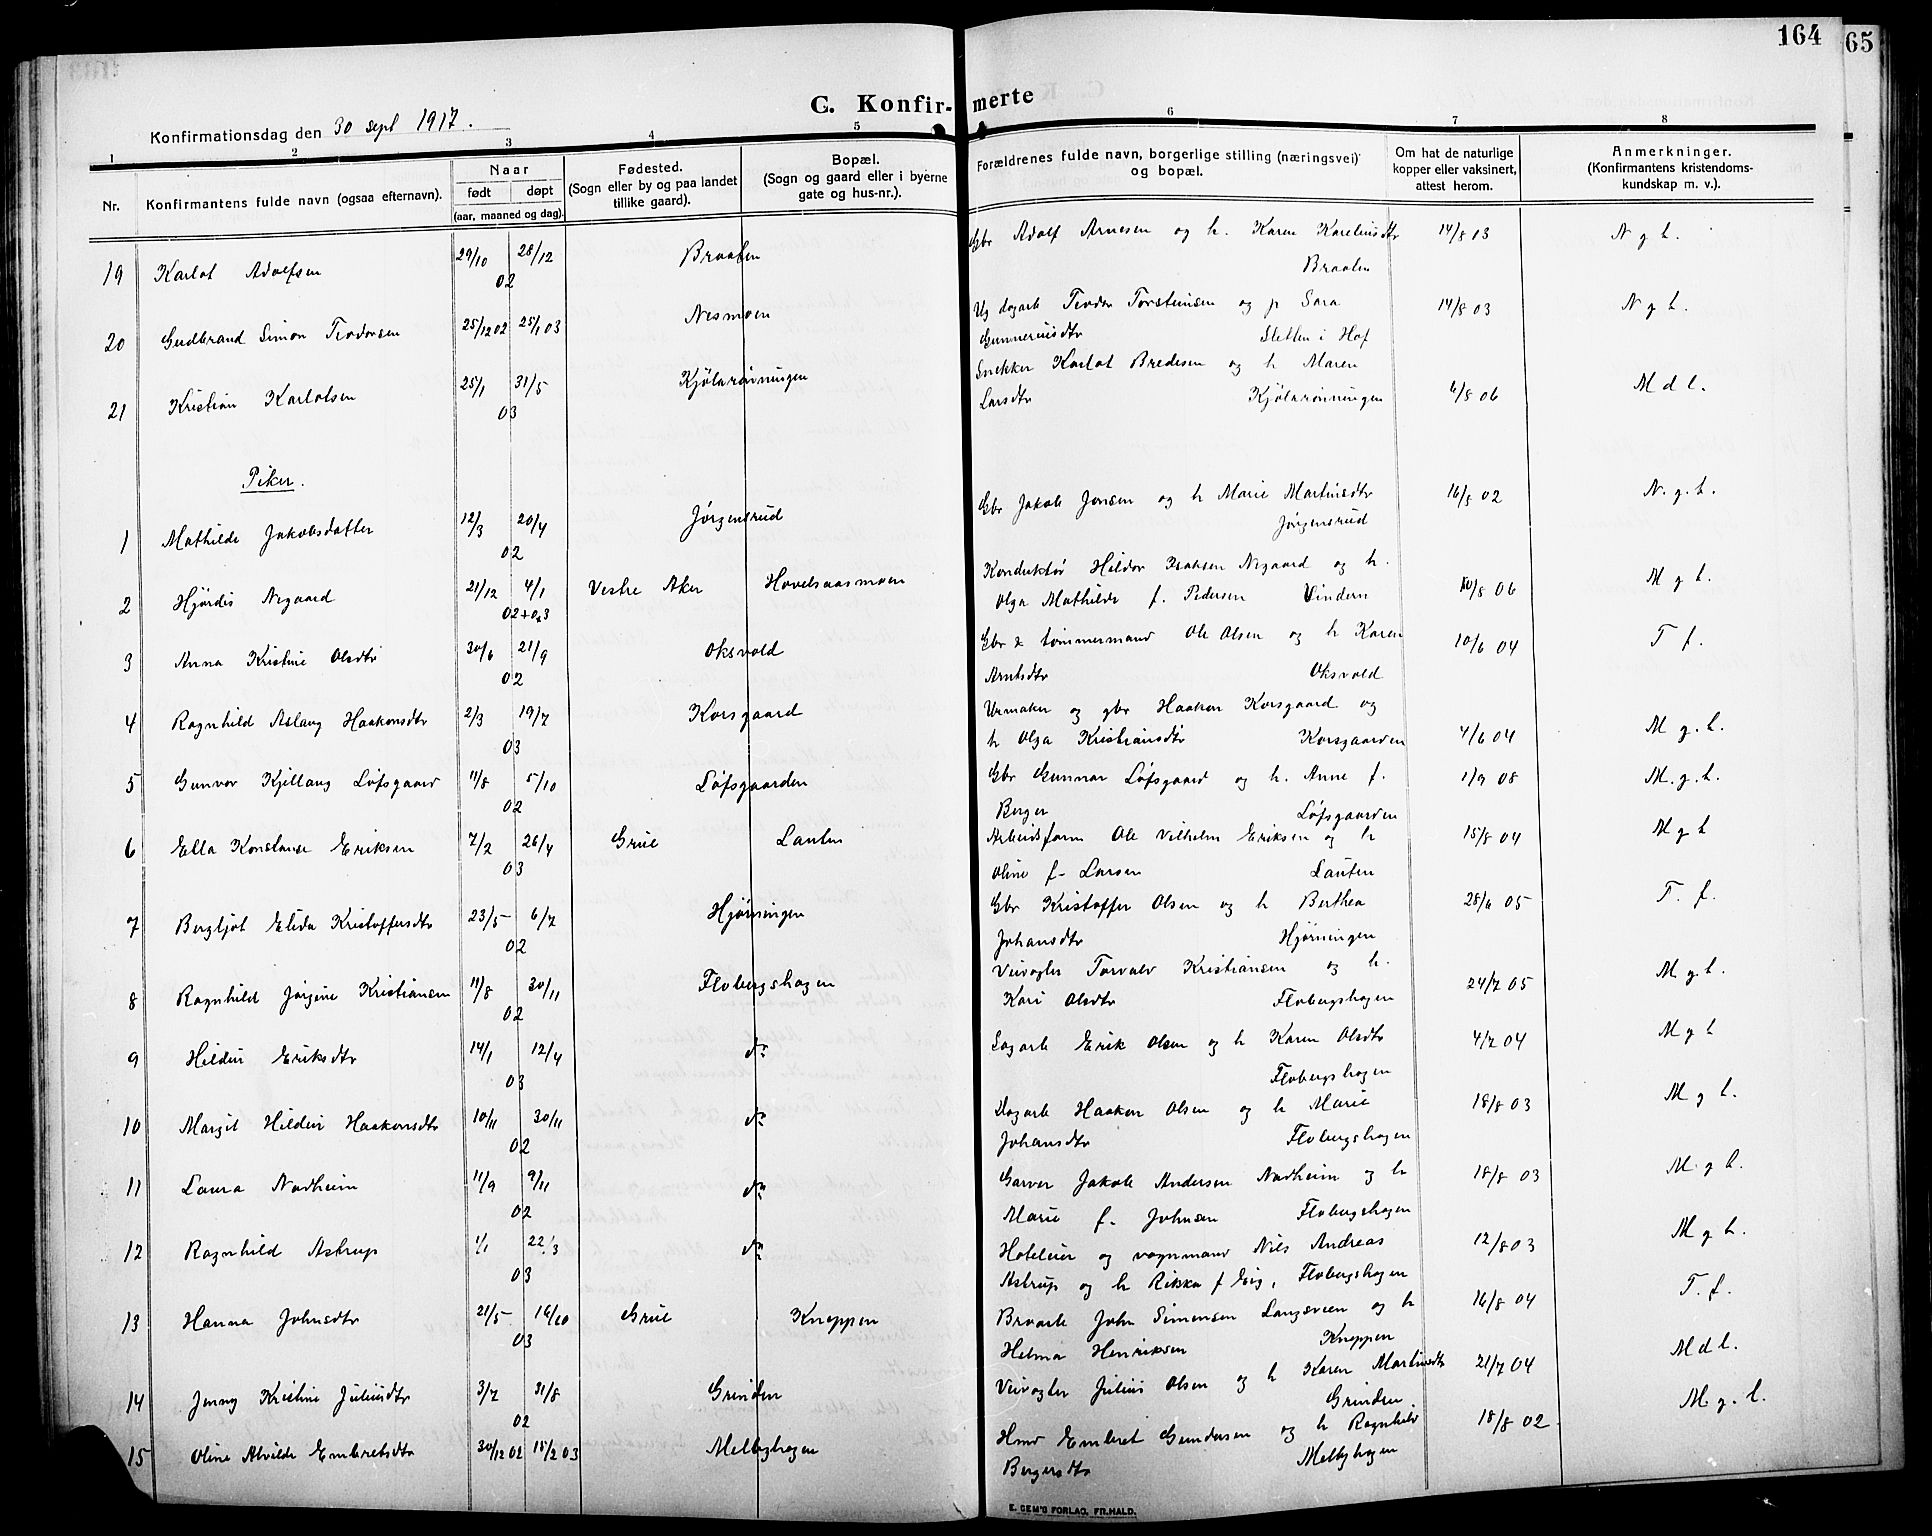 164
65
C. Konfirmerte
Konfirmationsdag den 30 sept 1917.
1 2 3 4 5 6 7 8
Nr.
Konfirmantens fulde navn (ogsaa efternavn).
Naar
født døpt
(aar, maaned og dag).
Fødested.
(Sogn eller by og paa landet
tillike gaard).
Bopæl.
(Sogn og gaard eller i byerne
gate og hus-nr.).
Forældrenes fulde navn, borgerlige stilling (næringsvei)
og bopæl.
Om hat de naturlige
kopper eller vaksinert,
attest herom.
Anmerkninger.
(Konfirmantens kristendoms-
kundskap m. v.).
19 Karlot Adolfsen 29/10 28/12 02 Braaten Gbr Adolf Arnesen og h. Karen Kareliusdtr 14/8 03 N g t.
Braaten
20 Gudbrand Simon Teodorsen 25/12 02 25/1 03 Nesmoen Ug dagarb Teodor Torsteinsen og p Sara 14/8 03 N g t.
Gunneriusdtr Sletten i Hof
21 Kristian Karlotsen 25/1 31/5 03 Kjølarønningen Snekker Karlot Bredesen og h Maren
Larsdtr Kjølarønningen 6/8 06 M d t.
Piker.
1 Mathilde Jakobsdatter 12/3 20/4 02 Jørgensrud Gbr Jakob Jonsen og h Marie Martinsdtr 16/8 02 N. g. t.
Jørgensrud
2 Hjørdis Nygaard 21/12 4/1 02+03 Vestre Aker Hovelsaasmoen Konduktør Hildor Isaksen Nygaard og h.
Olga Mathilde f. Pedersen Vindern 10/8 06 M g t.
3 Anna Kristine Olsdtr 30/6 21/9 02 Oksvold Gbr & tømmermand Ole Olsen og h Karen 10/6 04 T f.
Arntsdtr Oksvold
4 Ragnhild Aslaug Haakonsdtr 2/3 19/7 03 Korsgaard Urmaker og gbr Haakon Korsgaard og
h Olga Kristiansdtr Korsgaarden 4/6 04 M g. t.
5 Gunvor Kjellaug Løfsgaard 11/8 5/10 02 Løfsgaarden Gbr Gunnar Løfsgaard og h. Anne f. 1/9 08 M. g. t.
Berger Løfsgaarden
6 Ella Konstanse Eriksen 7/2 26/4 03 Grue Lauten Arbeidsform Ole Vilhelm Eriksen og h 15/8 04 M g t
Oline f. Larsen Lauten
7 Bergljot Elida Kristoffersdtr 23/5 6/7 02 Hjørningen Gbr Kristoffer Olsen og h Berthea 28/6 05 T. f.
Johansdtr Hjørningen
8 Ragnhild Jørgine Kristiansen 11/8 30/11 02 Flobergshagen Veivogter Torvald Kristiansen og h.
Kari Olsdtr Flobergshagen 24/7 05 M g t.
9 Hildur Eriksdtr 14/1 12/4 03 do Sagarb Erik Olsen og h Karen Olsdtr 4/7 04 M g t
Flobergshagen
10 Margit Hildur Haakonsdtr 10/11 30/11 02 do Dagarb Haakon Olsen og h Marie 18/8 03 M g t.
Johansdtr Flobergshagen
11 Laura Nordheim 11/9 9/11 02 do Garver Jakob Andersen Nordheim og h 18/8 03 M. g t.
Marie f. Johnsen Flobergshagen
12 Ragnhild Astrup 1/1 22/3 03 do Hoteleier og vognmand Nils Andreas 12/8 03 M g t.
Astrup og h Rikka f Eig, Flobergshagen
13 Hanna Johnsdtr 21/5 16/10 03 Grue Kneppen Broarb John Simensen Langsveen og h 16/8 04 T. f.
Helma Henriksen Kneppen
14 Jenny Kristine Juliusdtr 3/7 31/8 02 Grinden Veivogter Julius Olsen og h Karen Martinsdtr 21/7 04 M d t.
Grinden
15 Oline Alvilde Embretsdtr 30/12 02 15/2 03 Melbyhagen Hmd Embret Gundersen og h Ragnhild 18/8 02 M. g. t.
Bergersdtr Melbyhagen
E. SEM'S FORLAG, FR.HALD.